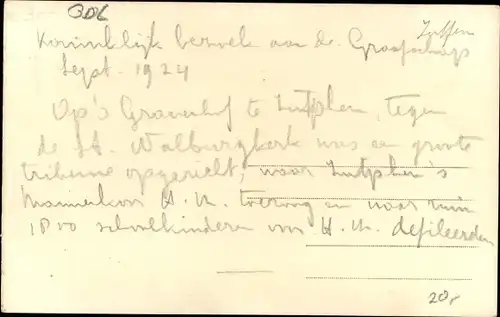 GDL
Zutfen
Koninklijk bezoek aan de Graafschap
Sept. 1924
Op 's Gravenhof te Zutphen, tegen
de St. Walburgkerk was een groote
tribune opgericht, waar Zutphen's
Mannenkoor H.M. toezong en waar ruim
1800 schoolkinderen voor H.M. defileerden
20,-